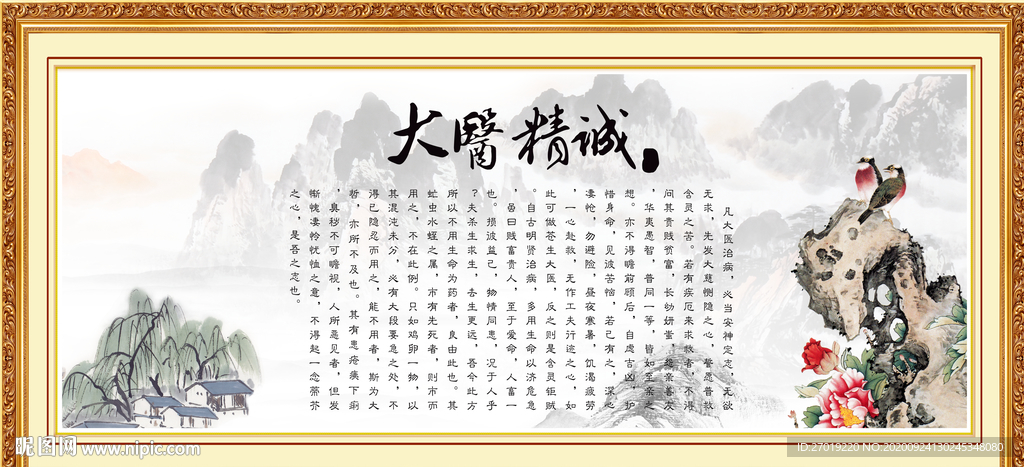 大醫精诚
凡大医治病，必当安神定志，无欲
无求，先发大慈恻隐之心，誓愿普救
含灵之苦。若有疾厄来求救者，不得
问其贵贱贫富，长幼妍蚩，怨亲善友
，华夷愚智，普同一等，皆如至亲之
想。亦不得瞻前顾后，自虑吉凶，护
惜身命，见彼苦恼，若己有之，深心
凄怆，勿避险，昼夜寒暑，饥渴疲劳
，一心赴救，无作工夫行迹之心，如
此可做苍生大医，反之则是含灵钜贼
。自古明贤治病，多用生命以济危急
，虽曰贱富贵人，至于爱命，人富一
也。损彼益己，物情同患，况于人乎
？夫杀生求生，去生更远，吾今此方
所以不用生命为药者，良由此也。其
虻虫水蛭之属，市有先死者，则市而
用之，不在此例。只如鸡卵一物，以
其混沌未分，必有大段要急之处，不
得已隐忍而用之，能不用者，斯为大
哲，亦所不及也。其有患疮痍下痢
，臭秽不可瞻视，人所恶见者，但发
惭愧凄怜忧恤之意，不得起一念蒂芥
之心，是吾之志也。
昵图网 www.nipic.com
ID:27019220 NO:20200924130245348080